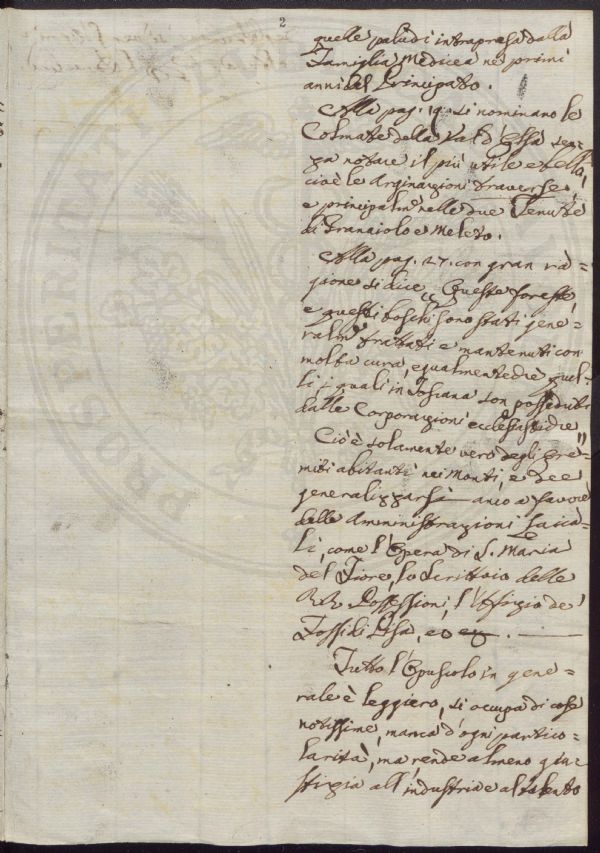 2
quelle paludi intrapresa dalla
Famiglia Medicea nei primi
anni del Principato.
Alla pag. 19. si nominano le
Colmate della Val d'Elsa sen=
za notare il più utile e bello,
cioè le Arginazioni traverse,
e principalm.e nelle due Tenute
di Granaiolo e Meleto.
Alla pag. 27. con gran ra=
gione si dice "Queste foreste,
e questi boschi sono stati gene=
ralm.e trattati e mantenuti con
molta cura, egualmente che quel=
li, i quali in Toscana son posseduti
dalle Corporazioni ecclesiastiche"
Ciò è solamente vero degli Ere=
miti abitanti nei Monti, e dee
generalizzarsi anco a favore
delle Amministrazioni Laica=
li, come l'Opera di S. Maria
del Fiore, lo Scrittoio delle
RR. Possessioni, l'Uffizio de'
Fossi di Pisa,
Tutto l'Opuscolo in gene=
rale è leggiero, si occupa di cose
notissime, manca d'ogni partico=
larità, ma rende almeno giu=
stizia all'industria e al talento
PROSPERITA